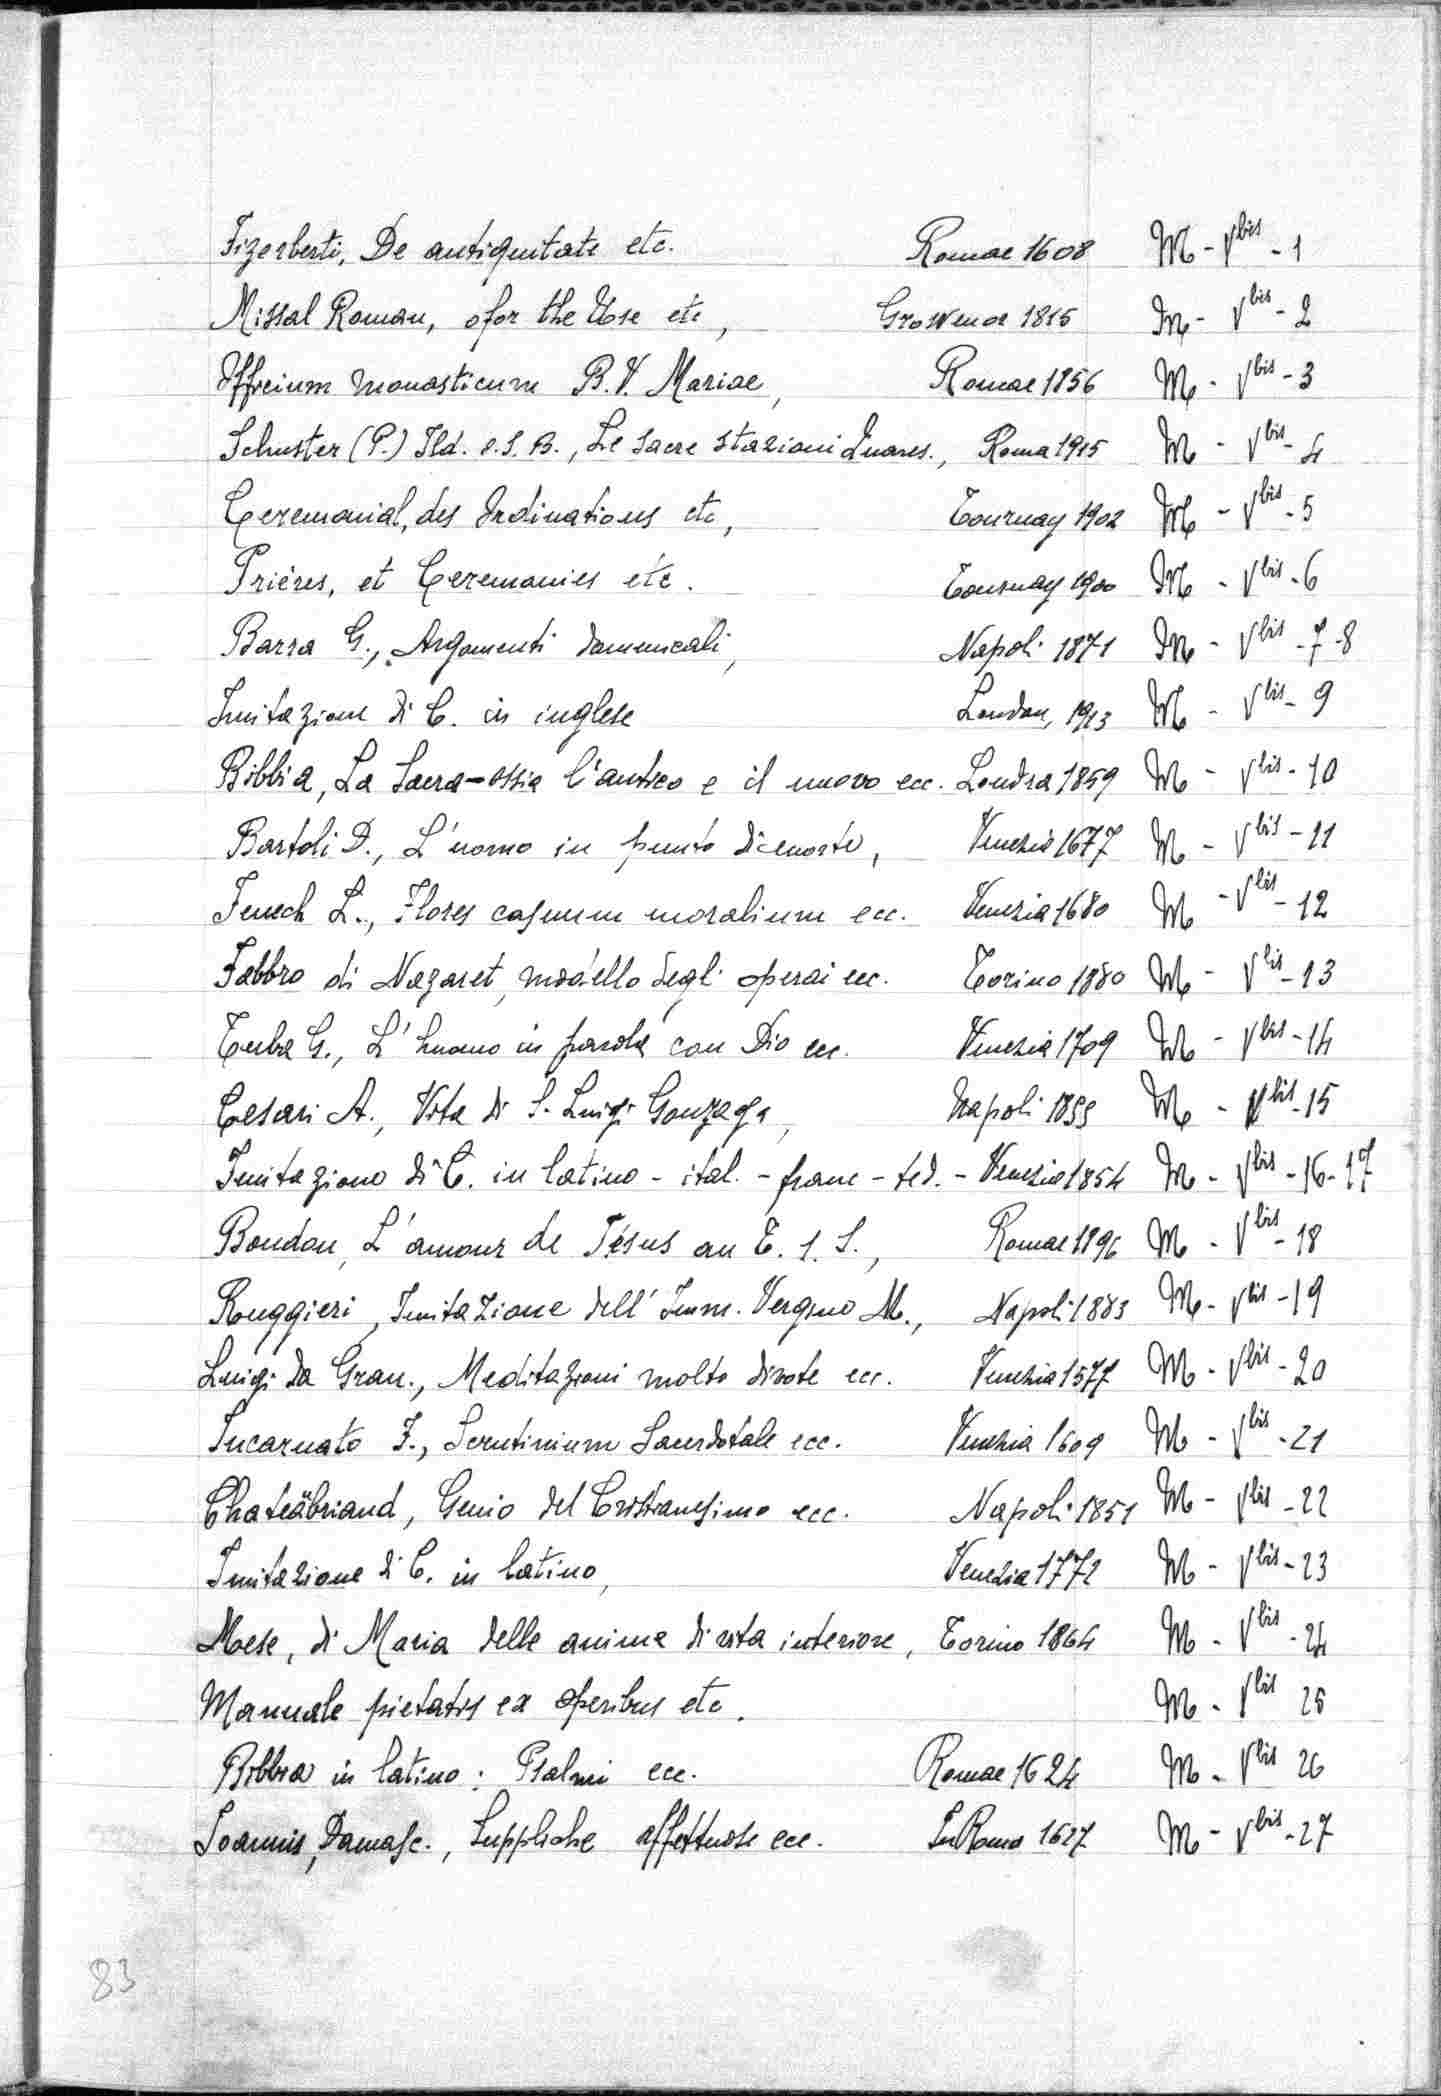 Fizerberti, De antiquitate etc. Romae 1608 M - Vbis - 1
Missal Roman, ofor the Use etc, Growenor 1815 M - Vbis - 2
Officium monasticum B.V. Mariae, Romae 1856 M - Vbis - 3
Schuster (P.) Ild. o.S.B., Le sacre stazioni Quares., Roma 1915 M - Vbis - 4
Ceremonial, des Ordinations etc, Tournay 1902 M - Vbis - 5
Prières, et Ceremonies etc. Tournay 1900 M - Vbis - 6
Barra G., Argomenti domenicali, Napoli 1871 M - Vbis - 7-8
Imitazione di C. in inglese London, 1913 M - Vbis - 9
Bibbia, La Sacra-ossia l'antico e il nuovo ecc. Londra 1859 M - Vbis - 10
Bartoli D., L'uomo in punto di morte, Venezia 1677 M - Vbis - 11
Fenech L., Flores casuum moralium ecc. Venezia 1680 M - Vbis - 12
Fabbro di Nazaret, modello degli operai ecc. Torino 1880 M - Vbis - 13
G., L'huomo in parola con Dio ecc. Venezia 1709 M - Vbis - 14
Cesari A., Vita di S. Luigi Gonzaga, Napoli 1855 M - Vbis - 15
Imitazione di C. in latino - ital. - franc - ted. - Venezia 1854 M - Vbis - 16-17
Boudon, L'amour de Jésus au T. S. S., Romae 1896 M - Vbis - 18
Ruggieri, Imitazione dell'Imm. Vergine M., Napoli 1883 M - Vbis - 19
Luigi da Gran., Meditazioni molto divote ecc. Venezia 1577 M - Vbis - 20
Incarnato F., Scrutinium Sacerdotale ecc. Venezia 1609 M - Vbis - 21
Chateäbriand, Genio del Cristianesimo ecc. Napoli 1851 M - Vbis - 22
Imitazione di C. in latino, Venezia 1772 M - Vbis - 23
Mese, di Maria delle anime di vita interiore, Torino 1864 M - Vbis - 24
Manuale pietatis ex operibus etc. M - Vbis 25
Bibbia in latino: Psalmi ecc. Romae 1624 M - Vbis 26
Joannis, Damasc., Suppliche affettuose ecc. In Roma 1627 M - Vbis - 27
83